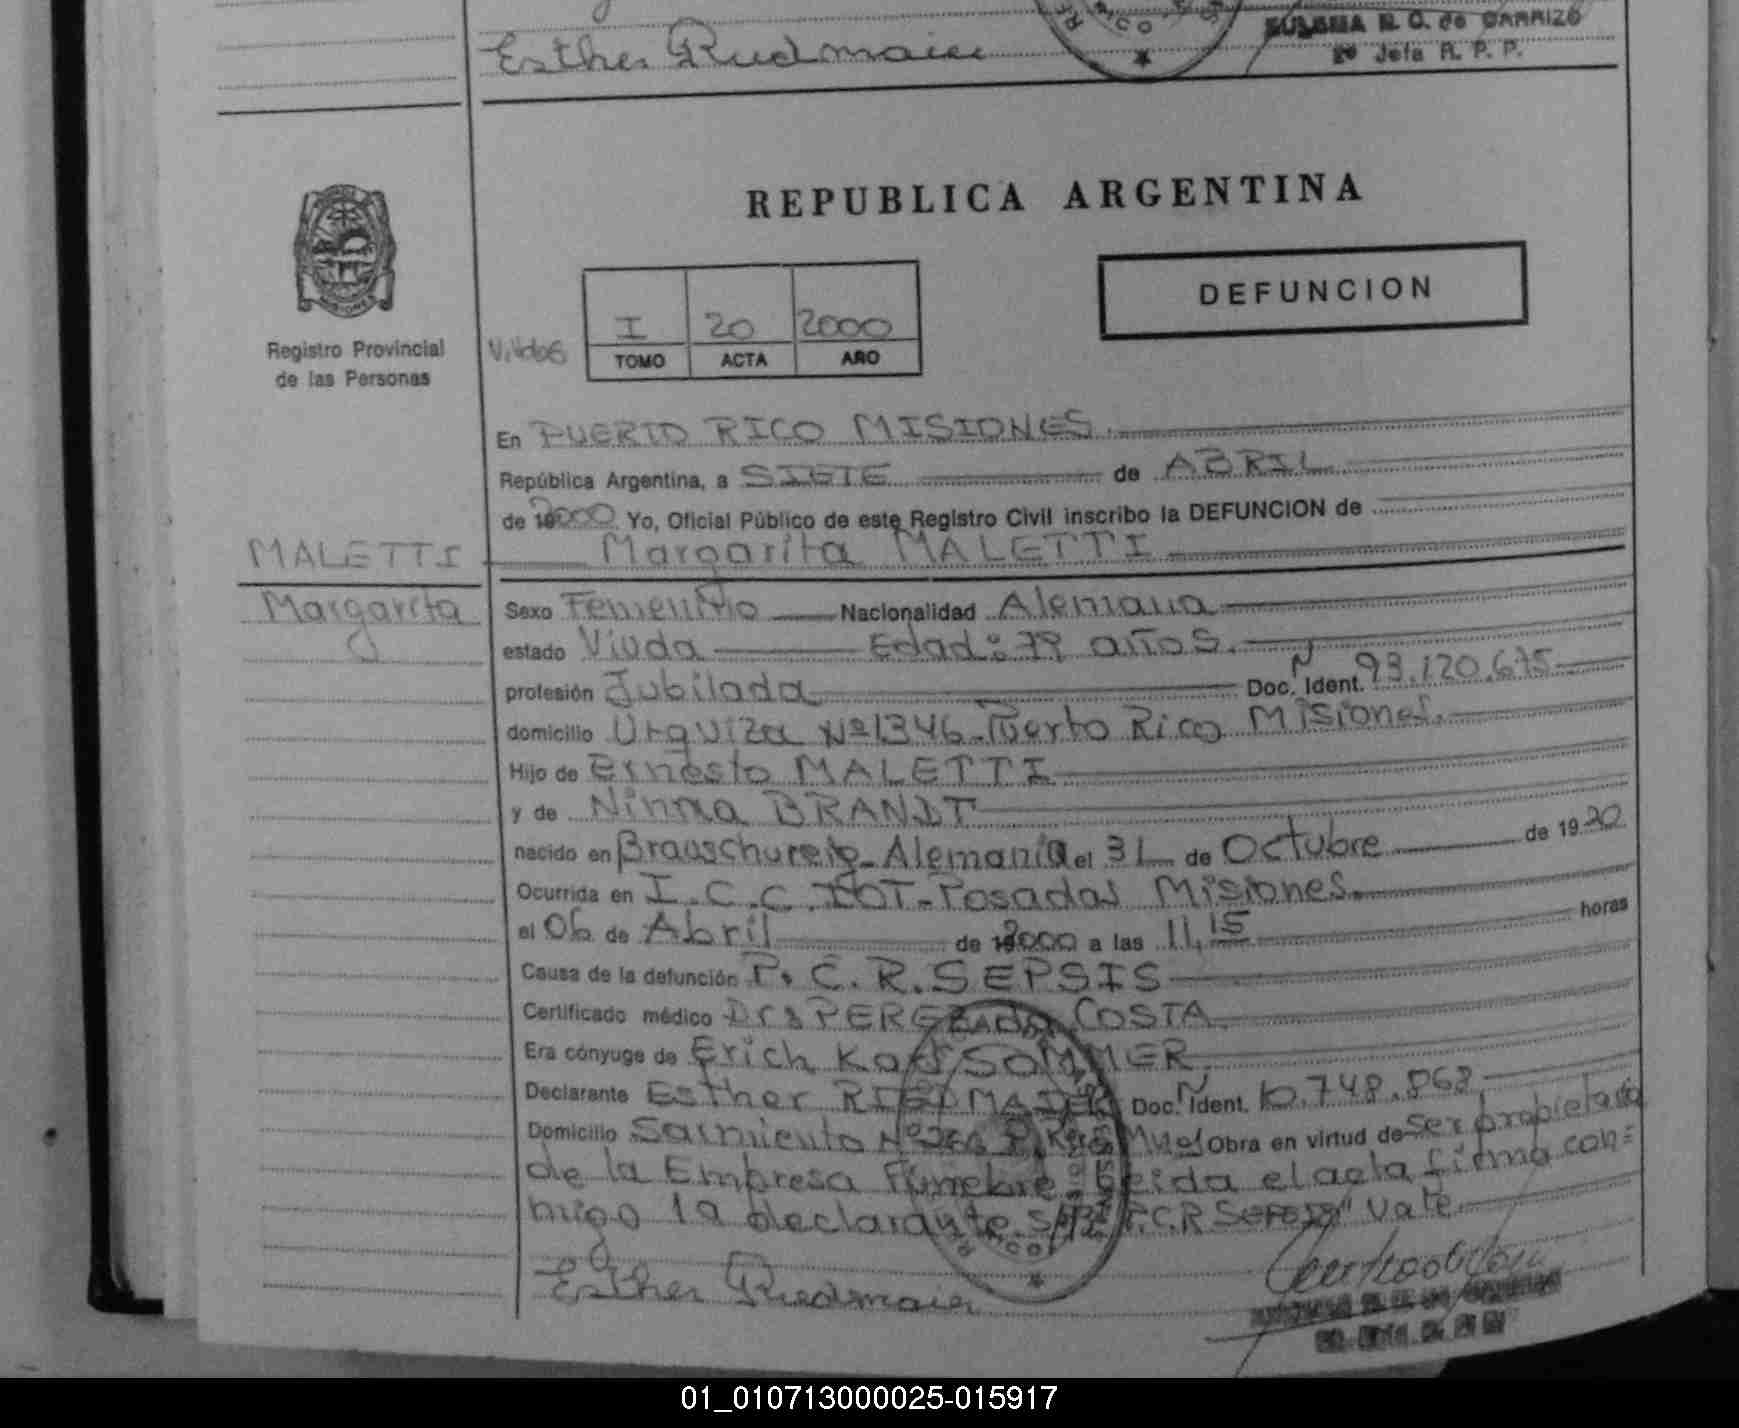 Esther Riedmaier
SUSANA N. O. de CARRIZO
2º Jefa R. P. P.
REPUBLICA ARGENTINA
DEFUNCION
I 20 2000
TOMO ACTA AÑO
Registro Provincial
de las Personas
En PUERTO RICO MISIONES
República Argentina, a SIETE de ABRIL
de 2000 Yo, Oficial Público de este Registro Civil inscribo la DEFUNCION de
MALETTI Margarita MALETTI
Margarita
Sexo Femenino Nacionalidad Alemana
estado Viuda Edad: 79 años.
profesión Jubilada Doc. N Ident. 93.120.675
domicilio Urquiza Nº 1346 - Puerto Rico Misiones.
Hijo de Ernesto MALETTI
y de BRANDT
nacido en Alemania el 31 de Octubre de 1920
Ocurrida en I.C.C. Posadas Misiones.
el 06 de Abril de 2000 a las 11,15 horas
Causa de la defunción P.C.R. SEPSIS
Certificado médico COSTA
Era cónyuge de Erich SOMMER
Declarante Esther RIEDMAIER Doc. N Ident. 10.748.868
Domicilio Sarmiento Nº Obra en virtud de ser propietaria
de la Empresa Funebre. Leida el acta firma con=
migo la declarante. P.C.R SEPSIS" Vale
Esther Riedmaier
01_010713000025-015917